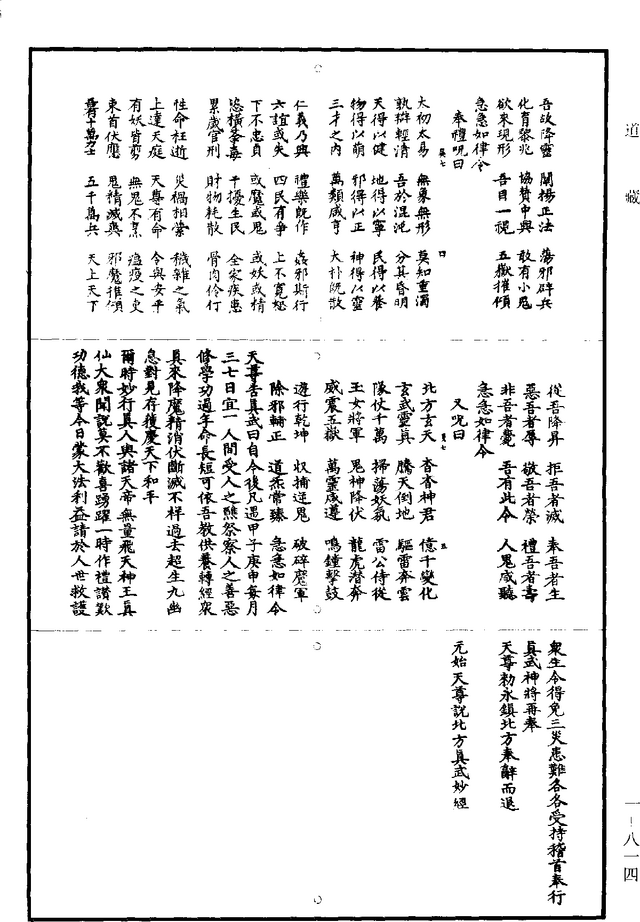 道藏
吾故降靈　闡揚正法　蕩邪辟兵
化育黎兆　協贊中興　敢有小鬼
欲來現形　吾目一視　五嶽摧傾
急急如律令
奉禮呪曰
太初太易　無象無形　莫知重濁
孰辨輕清　吾於混沌　分其昏明
天得以健　地得以寧　民得以養
物得以萌　邪得以正　神得以靈
三才之內　萬類咸亨　大朴既散
仁義乃興　禮樂既作　姦邪斯行
六誼或失　四民有爭　上不寬恕
下不忠貞　或魔或鬼　或妖或精
恣橫荼毒　干擾生民　全家疾患
累歲官刑　財物耗散　骨肉伶仃
性命枉逝　災禍相縈　穢雜之氣
上達天庭　天尊有命　令與安平
有妖皆剪　無鬼不烹　瘟疫之吏
束首伏膺　鬼精滅爽　邪魔摧傾
吾有十萬力士　五千萬兵　天上天下
從吾降昇　拒吾者滅　奉吾者生
惡吾者辱　敬吾者榮　禮吾者壽
非吾者夭　吾有此令　人鬼咸聽
急急如律令
又呪曰
北方玄天　杳杳神君　億千變化
玄武靈真　騰天倒地　驅雷奔雲
隊仗千萬　掃蕩妖氛　雷公侍從
玉女將軍　鬼神降伏　龍虎潛奔
威震五嶽　萬靈咸遵　鳴鐘擊鼓
遊行乾坤　收捕逆鬼　破碎魔軍
除邪輔正　道炁常臻　急急如律令
天尊告真武曰自今後凡遇甲子庚申每月
三七日宜一人間受人之醮祭察人之善惡
修學功過年命長短可依吾教供養轉經眾
真來降魔精消伏斷滅不祥過去超生九幽
息對見存獲慶天下和平
爾時妙行真人與諸天帝無量飛天神王真
仙大眾聞說莫不歡喜踴躍一時作禮讚歎
功德我等今日蒙大法利益請於人世救護
眾生令得免三災患難各各受持稽首奉行
真武神將再奉
天尊勅永鎮北方奉辭而退
元始天尊說北方真武妙經
一－八一四